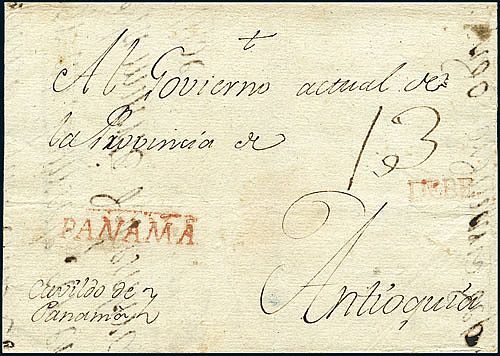 †
Al Govierno actual de
la Provincia de
13
YNDE
PANAMA
Antioquia
Cavildo de
Panamá